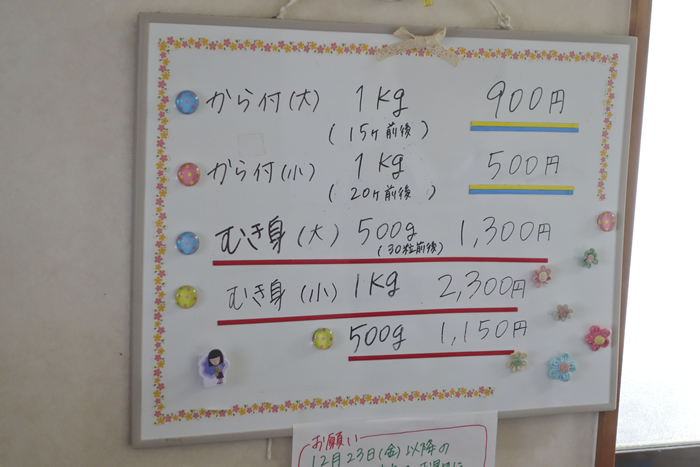 から付(大) 1kg 900円
(15ヶ前後)
から付(小) 1kg 500円
(20ヶ前後)
むき身(大) 500g 1,300円
(30粒前後)
むき身(小) 1kg 2,300円
500g 1,150円
お願い
12月23日(金)以降の